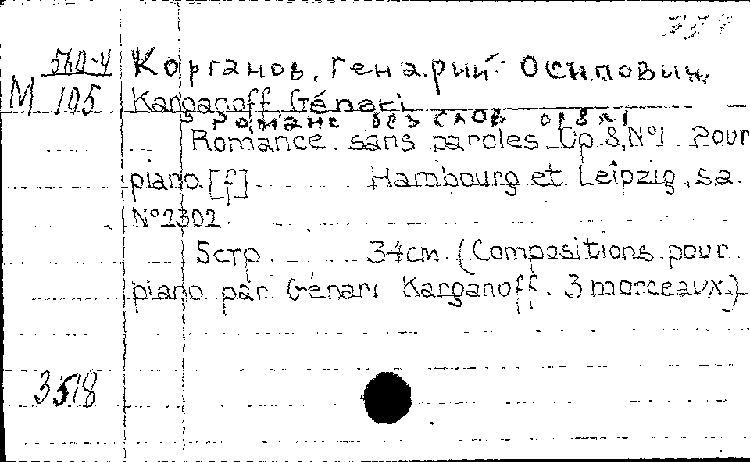 560-4
М 105
Корганов, Генарий Осипович
Karganoff Génari
Романс без слов ор 8 №1
Romance sans paroles Op. 8, Nº1 Pour
piano. [f] Hambourg et Leipzig, s.a.
Nº2302
5стр. 34см. (Compositions pour
piano par Génari Karganoff. 3 morceaux.)
3518